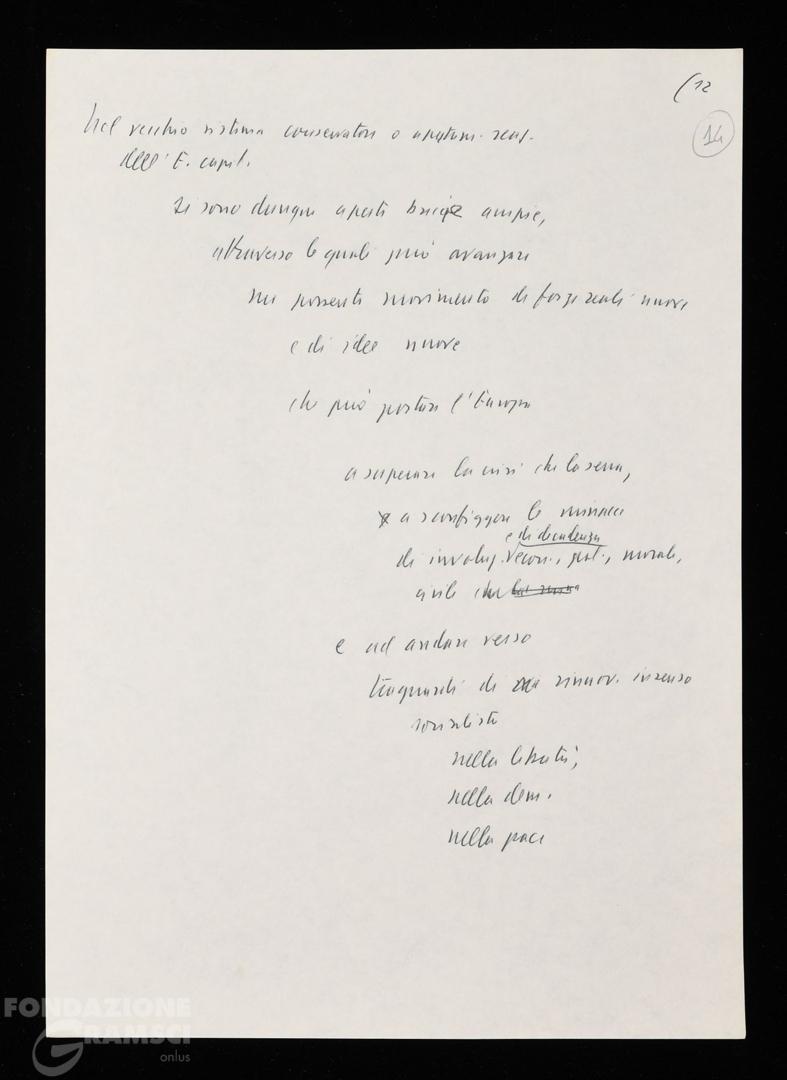 (12
14
Nel vecchio sistema conservatore o
dell'E. capit.
si sono dunque aperte brecce ampie,
attraverso le quali può avanzare
un possente movimento di forze reali nuove
e di idee nuove
che può portare l'Europa
a superare la crisi che la serra,
a sconfiggere le minacce
e di decadenza
di involuz. econ., pol., morale,
civile che
e ad andare verso
traguardi di rinnov. in senso
socialista
nella libertà,
nella dem.
nella pace
FONDAZIONE
GRAMSCI
onlus